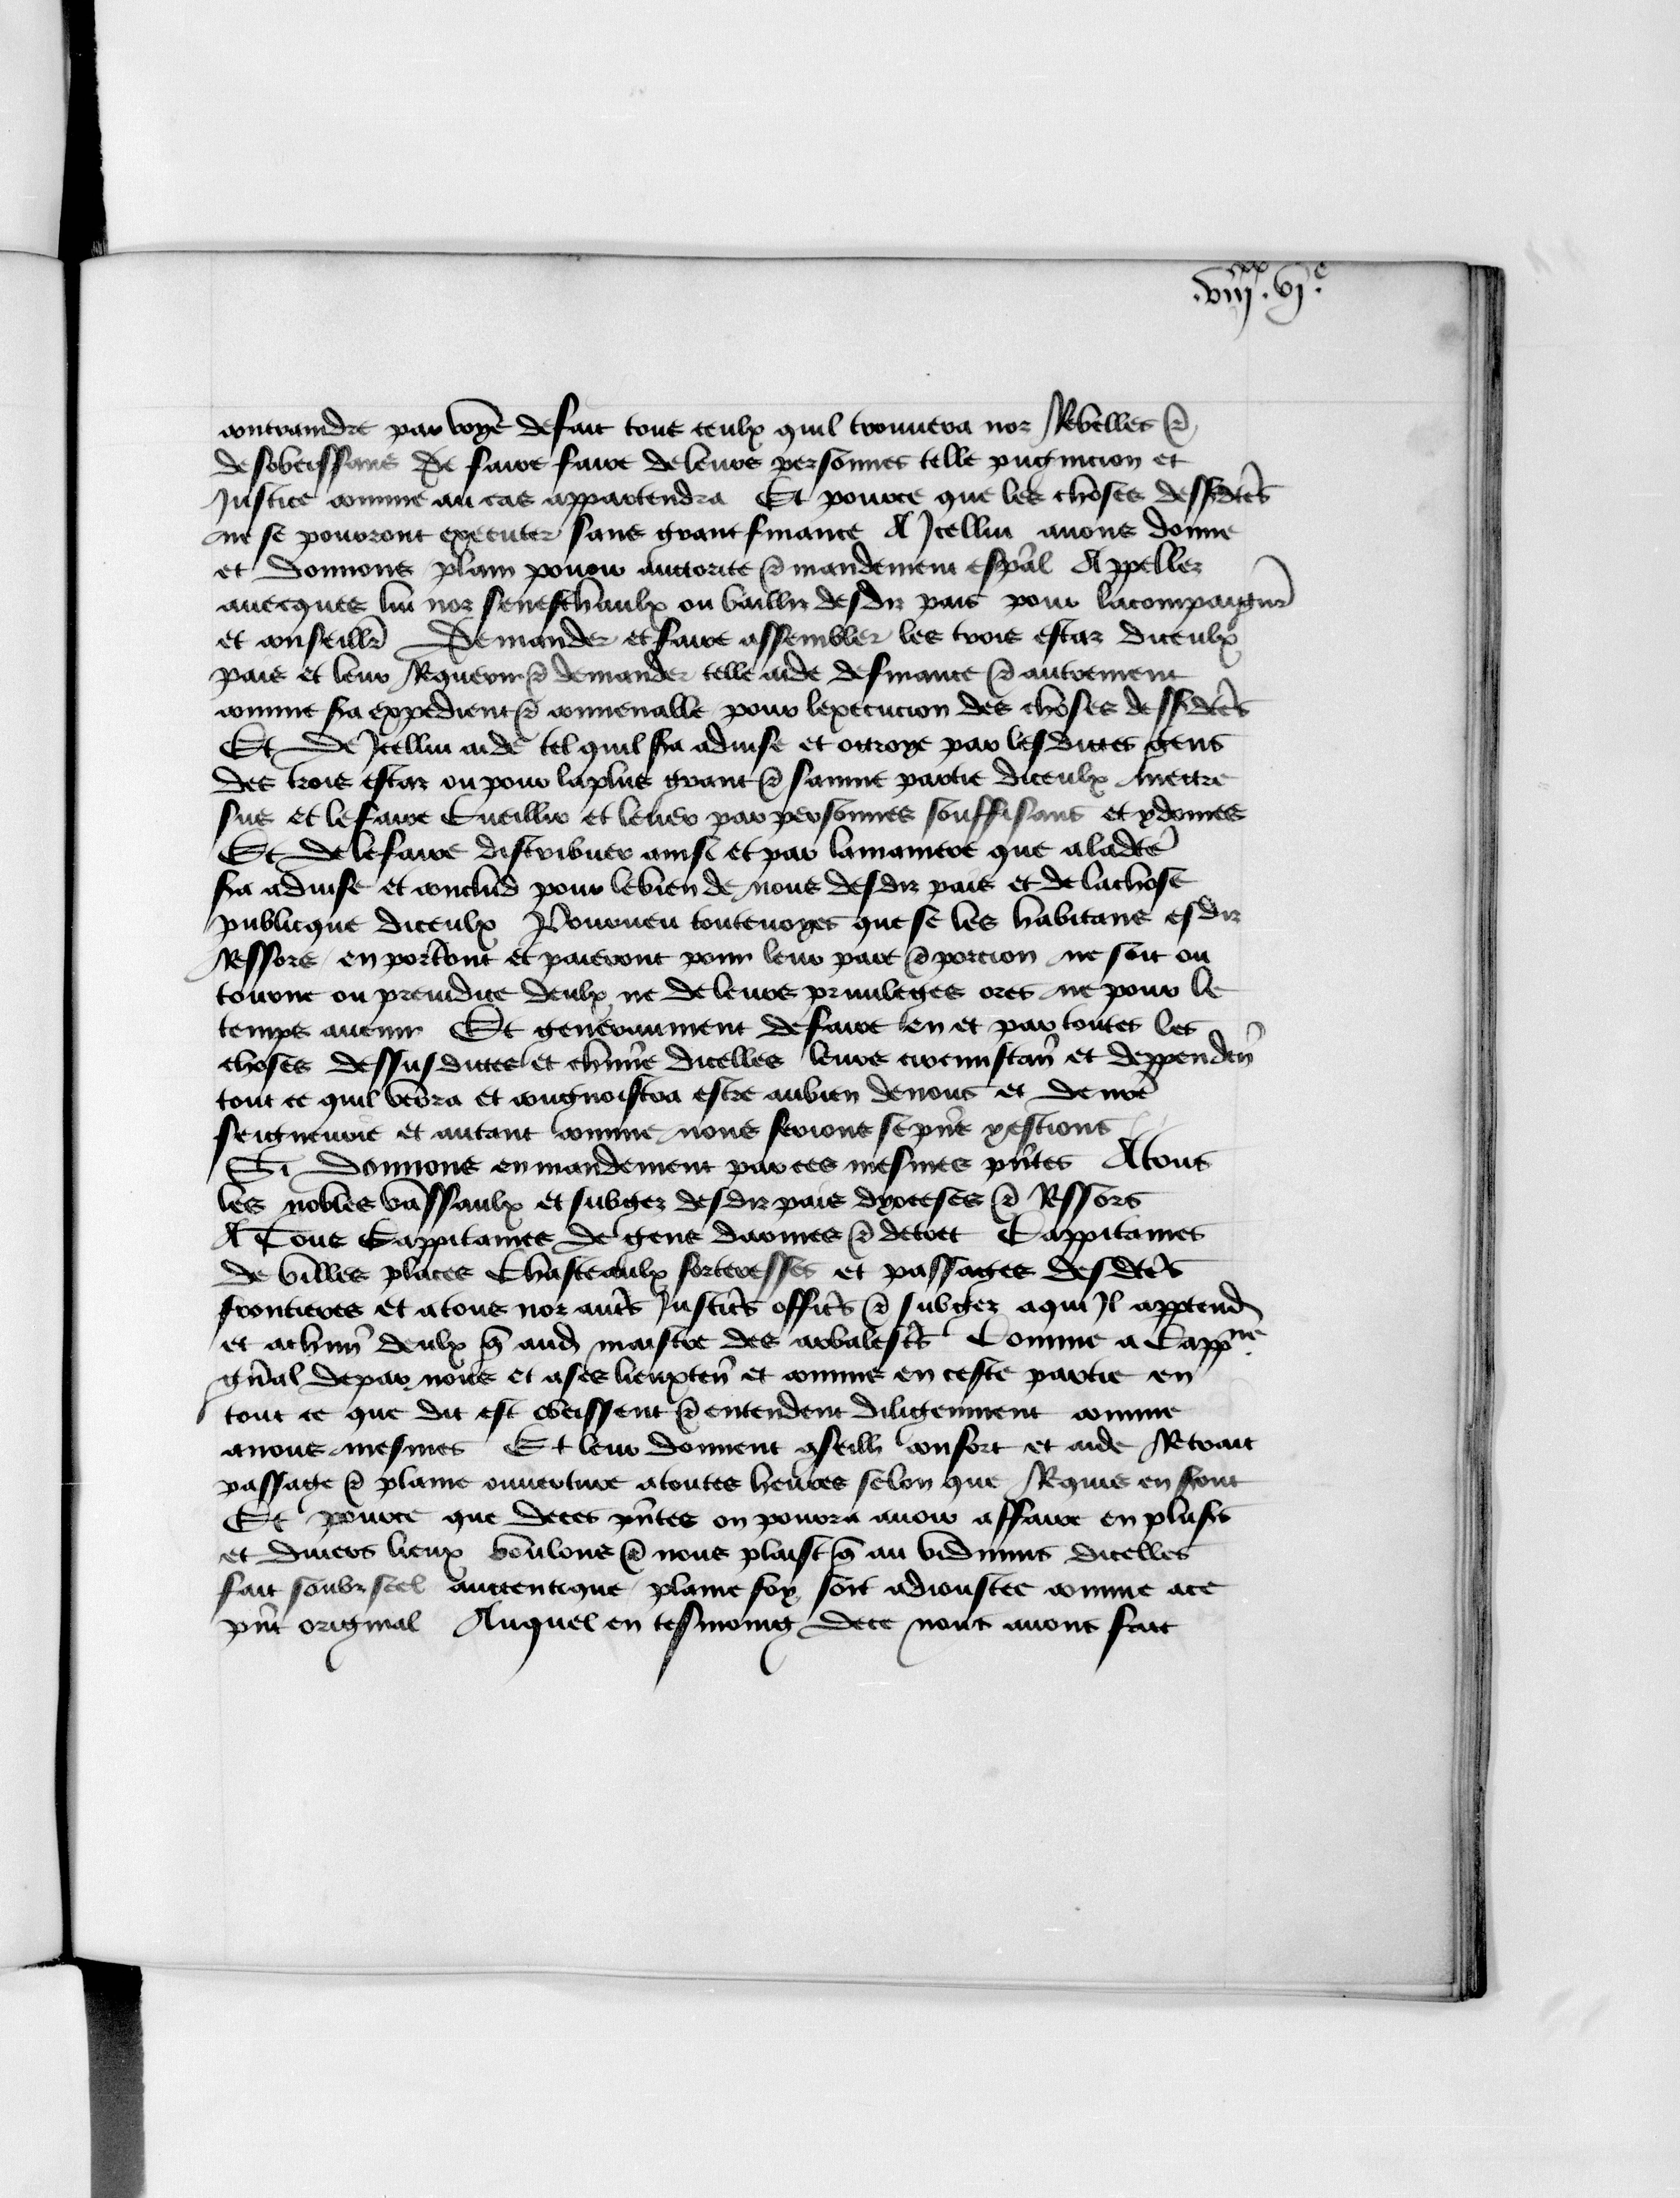 .viiixx.vje.
contraindre par voye de fait tous ceulx quil trouuera noz Rebelles et
desobeissans De faire faire de leurs personnes telle pugnicion et
Justice comme au cas appartendra Et pource que les choses dessusdtes
ne se pourront executer sans grant finance A Jcellui auons donne
et donnons plain pouoir auctorite et mandement espal Appeller
auecques lui noz seneschaulx ou bailliz desdiz pais pour lacompaignr
et conseillr De mander et faire assembler les trois estaz diceulx
pais et leur Requerir et demander telle aide de finance et autrement
comme sra expedient et conuenable pour lexecucion des choses dessusdtes
Et de Jcellui aide tel quil sra aduise et ottroye par lesdittes gens
des trois estaz ou pour la plus grant et sainne partie diceulx mettre
sus et le faire Cueillir et leuer par personnes souffisans et ydoines
Et de le faire distribuer ainsi et par la maniere que a ladte
sra aduise et conclud pour le bien de nous desdiz pais et de la chose
publicque diceulx Pourueu touteuoyes que se les habitans esdiz
Ressors en portont et paieront pour leur part et porcion ne soit ou
tourne ou preiudice deulx ne de leurs priuileges ores ne pour le
temps auenir Et generaument de faire en et par toutes les
choses dessusdittes et chune dicelles leurs circunstan et deppenden
tout ce quil verra et congnoistra estre au bien de nous et de nre
seigneurie et autant comme nous ferions se pns y estions
Si donnons en mandement par ces mesmes pntes A tous
les nobles vassaulx et subgez desdiz pais dyoceses et Ressors
A Tous Cappitaines de gens darmes et de tret Cappitaines
de villes places Chasteaulx forteresses et passages desdtes
frontieres et a tous noz autrs Justicrs officrs et subgez a qui Jl apptendr
et a chun deulx q aud maistre des arbalestrs Comme a Cappne
gnal de par nous et a ses lieuxten et comme en ceste partie en
tout ce que dit est obeissent et entendent diligemment comme
a nous mesmes Et leur donnent conseill confort et aide Retrait
passage et plaine ouuerture a toutes heures selon que Requis en sront
Et pource que de ces pntes on pourra auoir affaire en plusrs
et diuers lieux voulons et nous plaist q au vidimus dicelles
fait soubz seel auttentique plaine foy soit adioustee comme a ce
pnt original Auquel en tesmoing de ce nous auons fait